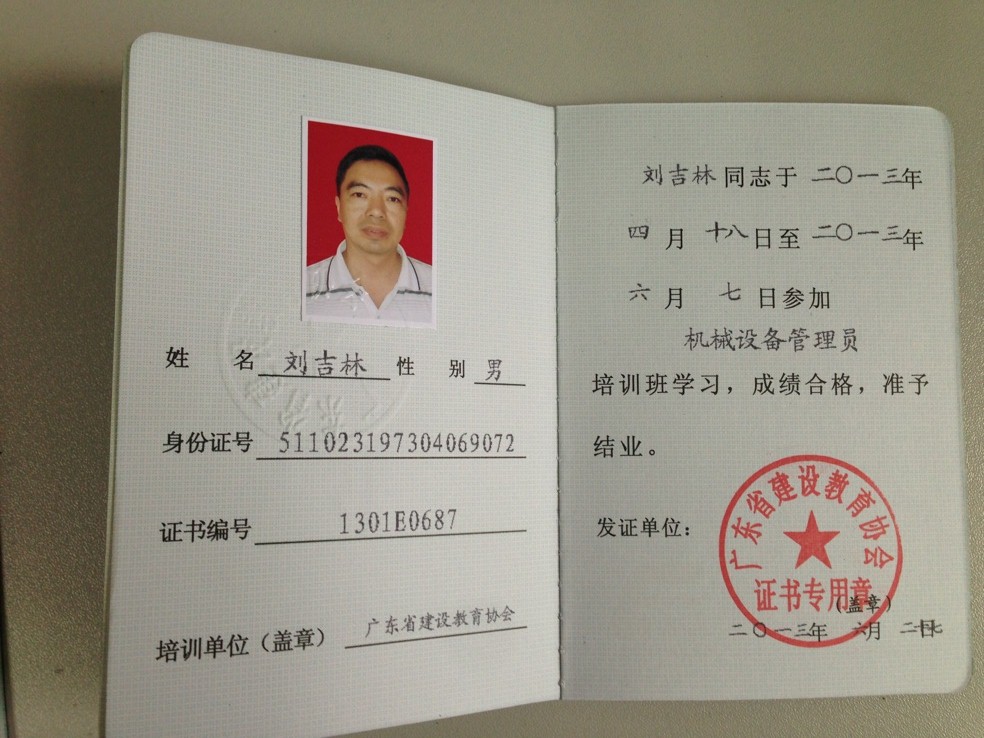 姓 名 刘吉林 性 别 男
身份证号 511023197304069072
证书编号 1301E0687
培训单位（盖章） 广东省建设教育协会
刘吉林 同志于 二〇一三年
四 月 十八 日至 二〇一三年
六 月 七 日参加
机械设备管理员
培训班学习，成绩合格，准予
结业。
发证单位：
广东省建设教育协会
证书专用章
（盖章）
二〇一三年 六月